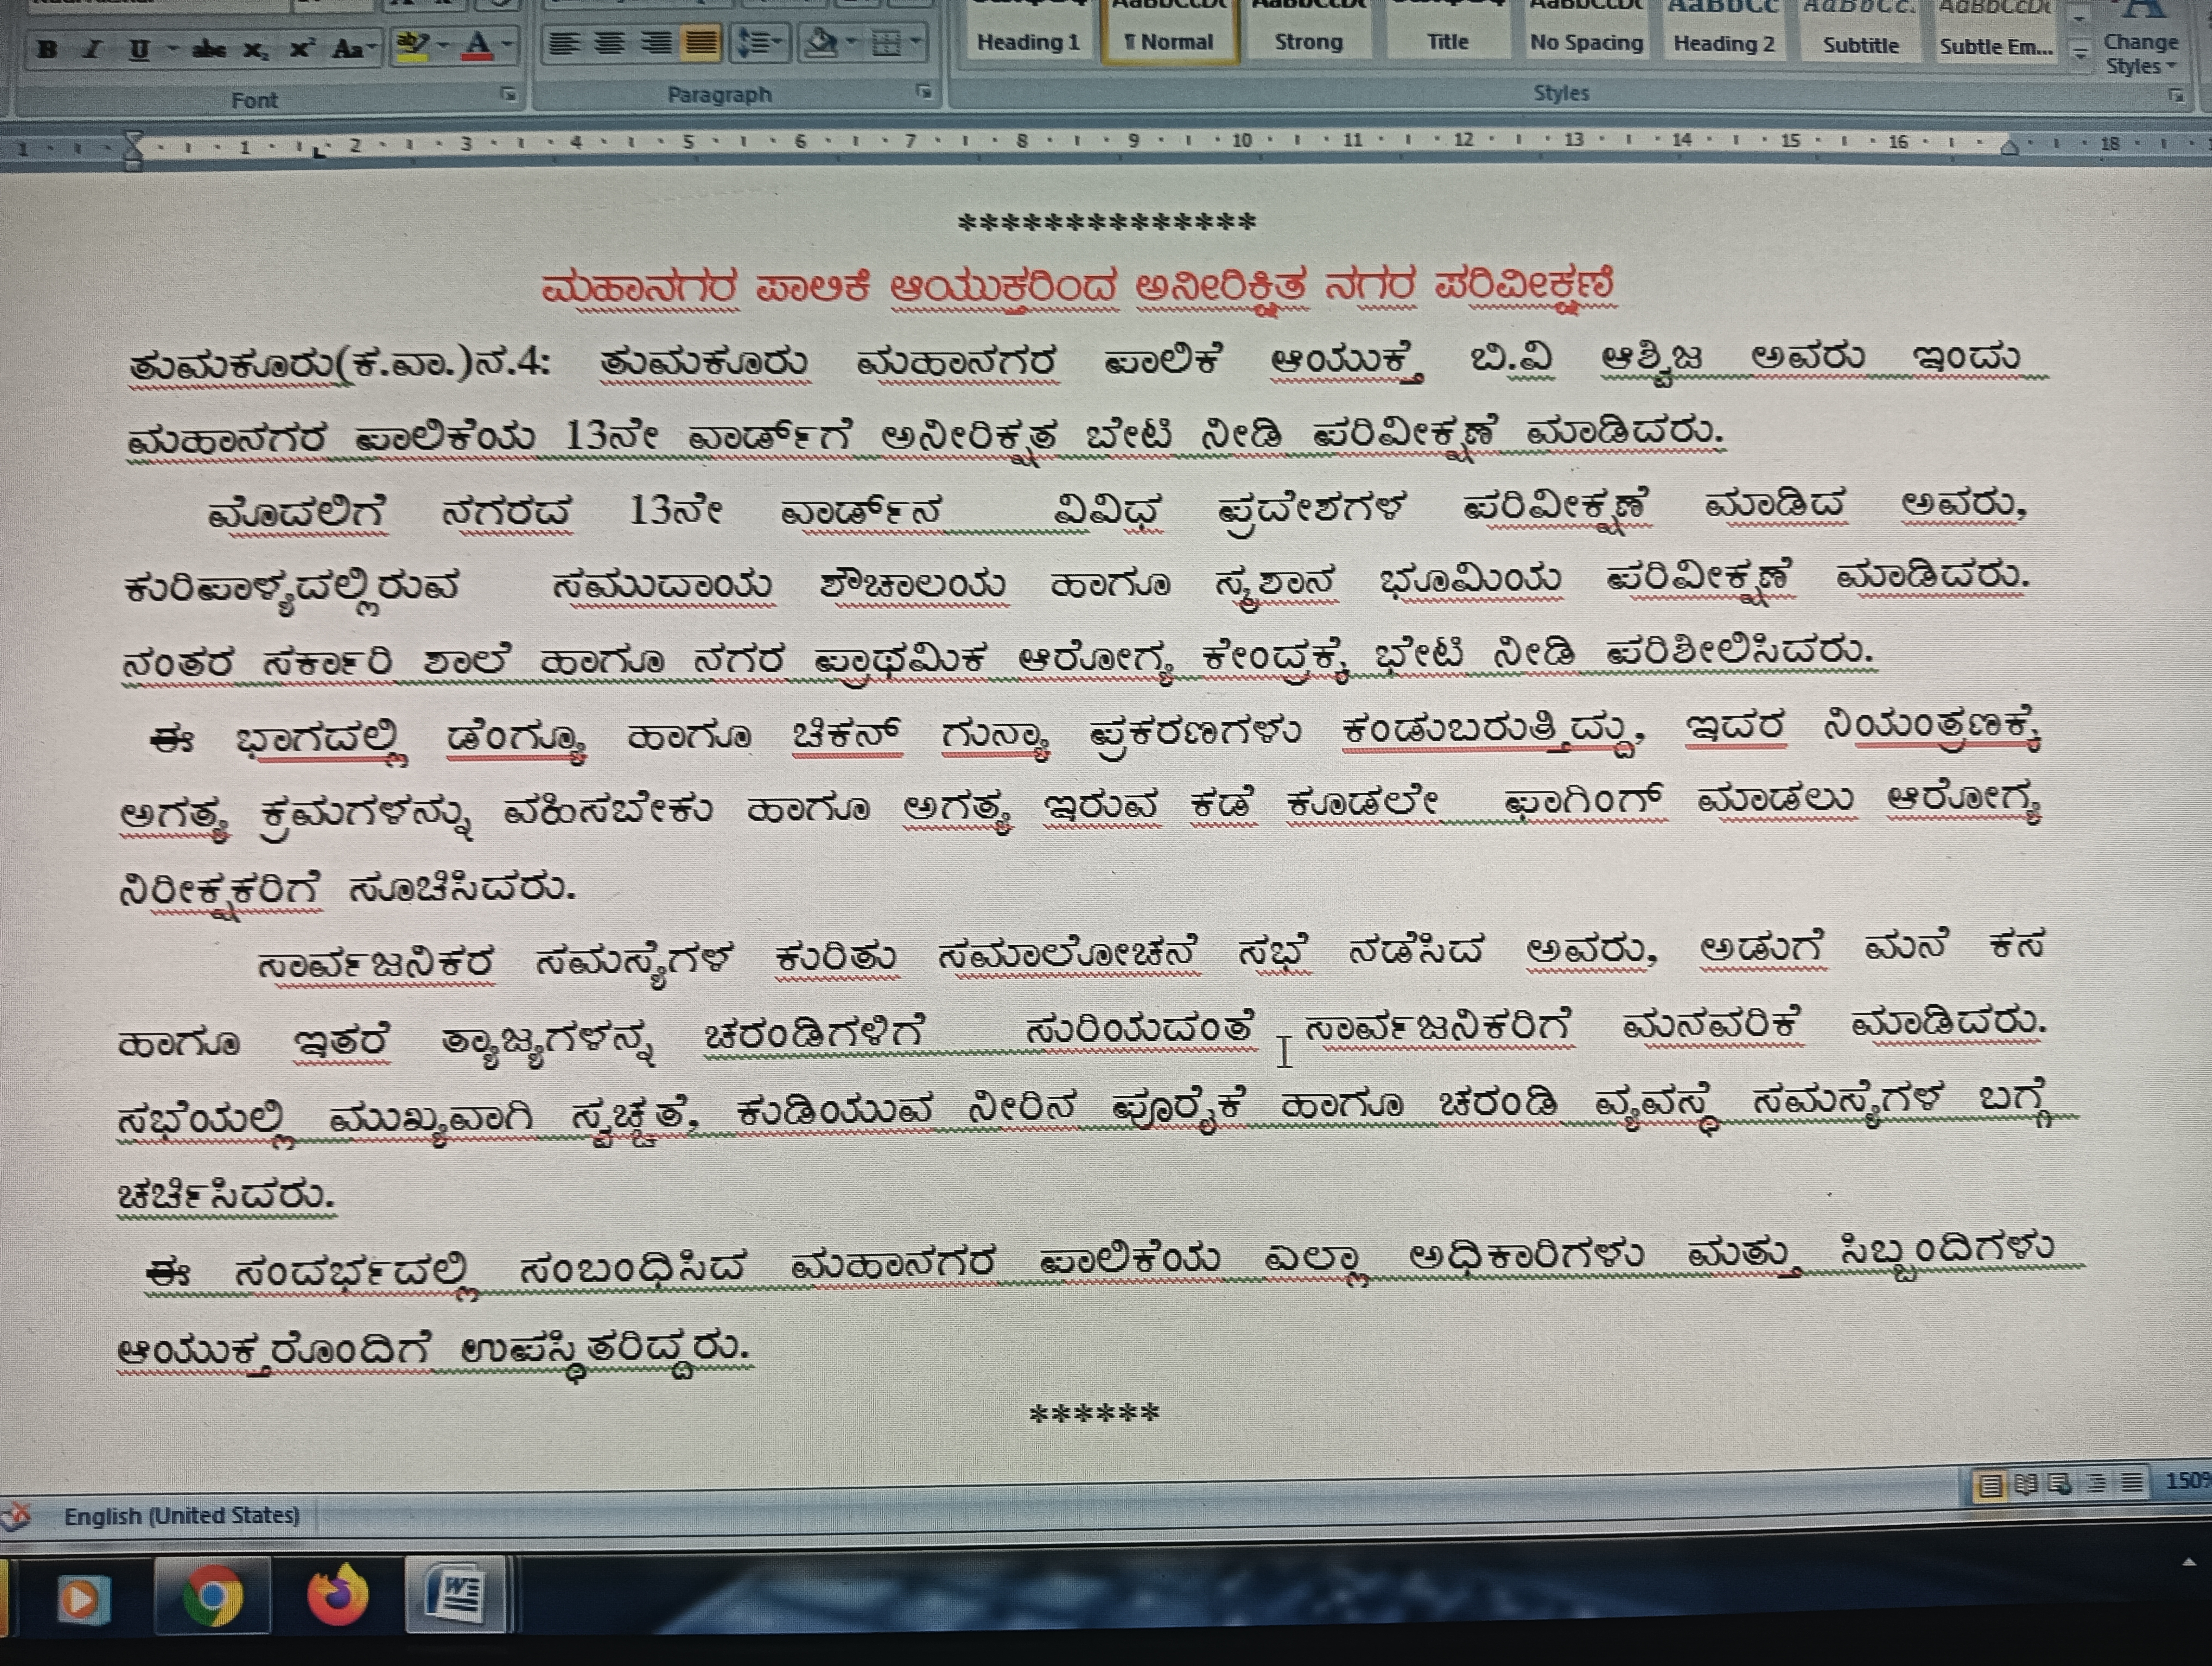 B I U abc X₂ X² Aa ab A
Heading 1 ¶ Normal Strong Title No Spacing Heading 2 Subtitle Subtle Em... Change
Styles
Font Paragraph Styles
1 1 2 3 4 5 6 7 8 9 10 11 12 13 14 15 16 18
**************
ಮಹಾನಗರ ಪಾಲಿಕೆ ಆಯುಕ್ತರಿಂದ ಅನೀರಿಕ್ಷಿತ ನಗರ ಪರಿವೀಕ್ಷಣೆ
ತುಮಕೂರು(ಕ.ವಾ.)ನ.4: ತುಮಕೂರು ಮಹಾನಗರ ಪಾಲಿಕೆ ಆಯುಕ್ತೆ ಬಿ.ವಿ ಆಶ್ವಿಜ ಅವರು ಇಂದು
ಮಹಾನಗರ ಪಾಲಿಕೆಯ 13ನೇ ವಾರ್ಡ್‌ಗೆ ಅನೀರಿಕ್ಷತ ಬೇಟಿ ನೀಡಿ ಪರಿವೀಕ್ಷಣೆ ಮಾಡಿದರು.
ಮೊದಲಿಗೆ ನಗರದ 13ನೇ ವಾರ್ಡ್‌ನ ವಿವಿಧ ಪ್ರದೇಶಗಳ ಪರಿವೀಕ್ಷಣೆ ಮಾಡಿದ ಅವರು,
ಕುರಿಪಾಳ್ಯದಲ್ಲಿರುವ ಸಮುದಾಯ ಶೌಚಾಲಯ ಹಾಗೂ ಸ್ಮಶಾನ ಭೂಮಿಯ ಪರಿವೀಕ್ಷಣೆ ಮಾಡಿದರು.
ನಂತರ ಸರ್ಕಾರಿ ಶಾಲೆ ಹಾಗೂ ನಗರ ಪ್ರಾಥಮಿಕ ಆರೋಗ್ಯ ಕೇಂದ್ರಕ್ಕೆ ಭೇಟಿ ನೀಡಿ ಪರಿಶೀಲಿಸಿದರು.
ಈ ಭಾಗದಲ್ಲಿ ಡೆಂಗ್ಯೂ ಹಾಗೂ ಚಿಕನ್ ಗುನ್ಯಾ ಪ್ರಕರಣಗಳು ಕಂಡುಬರುತ್ತಿದ್ದು, ಇದರ ನಿಯಂತ್ರಣಕ್ಕೆ
ಅಗತ್ಯ ಕ್ರಮಗಳನ್ನು ವಹಿಸಬೇಕು ಹಾಗೂ ಅಗತ್ಯ ಇರುವ ಕಡೆ ಕೂಡಲೇ ಫಾಗಿಂಗ್ ಮಾಡಲು ಆರೋಗ್ಯ
ನಿರೀಕ್ಷಕರಿಗೆ ಸೂಚಿಸಿದರು.
ಸಾರ್ವಜನಿಕರ ಸಮಸ್ಯೆಗಳ ಕುರಿತು ಸಮಾಲೋಚನೆ ಸಭೆ ನಡೆಸಿದ ಅವರು, ಅಡುಗೆ ಮನೆ ಕಸ
ಹಾಗೂ ಇತರೆ ತ್ಯಾಜ್ಯಗಳನ್ನ ಚರಂಡಿಗಳಿಗೆ ಸುರಿಯದಂತೆ ಸಾರ್ವಜನಿಕರಿಗೆ ಮನವರಿಕೆ ಮಾಡಿದರು.
ಸಭೆಯಲ್ಲಿ ಮುಖ್ಯವಾಗಿ ಸ್ವಚ್ಚತೆ, ಕುಡಿಯುವ ನೀರಿನ ಪೂರೈಕೆ ಹಾಗೂ ಚರಂಡಿ ವ್ಯವಸ್ಥೆ ಸಮಸ್ಯೆಗಳ ಬಗ್ಗೆ
ಚರ್ಚಿಸಿದರು.
ಈ ಸಂದರ್ಭದಲ್ಲಿ ಸಂಬಂಧಿಸಿದ ಮಹಾನಗರ ಪಾಲಿಕೆಯ ಎಲ್ಲಾ ಅಧಿಕಾರಿಗಳು ಮತ್ತು ಸಿಬ್ಬಂದಿಗಳು
ಆಯುಕ್ತರೊಂದಿಗೆ ಉಪಸ್ಥಿತರಿದ್ದರು.
******
English (United States) 150%